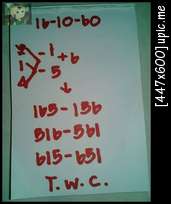 16-10-60
- 1
+ 6
- 5
165-156
516-561
615-651
T.W.C.
[447x600] upic.me